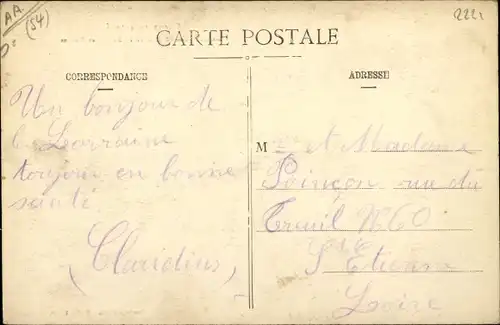 AA.
(54)
2221
CARTE POSTALE
CORRESPONDANCE
ADRESSE
Un bonjour de
la Lorraine
toujour en bonne
santé
(Claudius)
M et Madame
Poinçon rue du
Treuil N° 60
St Etienne
Loire